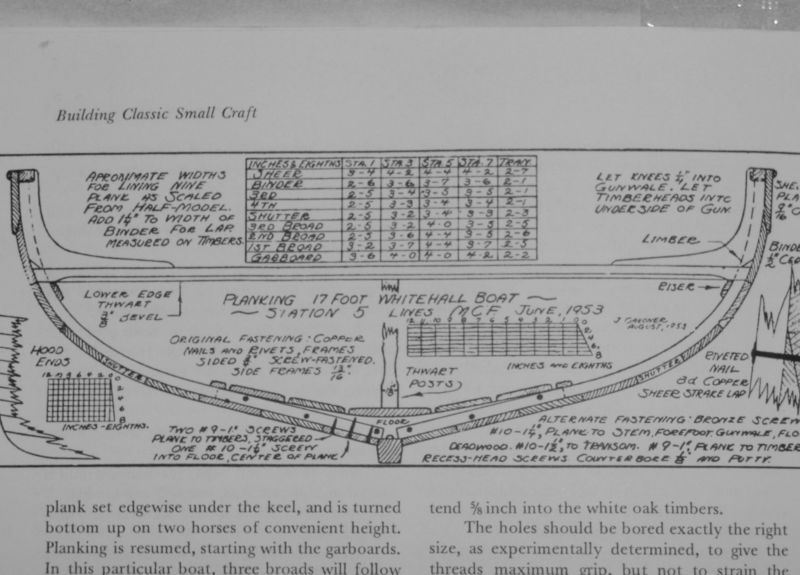 Building Classic Small Craft
APROXIMATE WIDTHS
FOR LINING NINE
PLANK AS SCALED
FROM HALF-MODEL.
ADD 1½" TO WIDTH OF
BINDER FOR LAP
MEASURED ON TIMBERS.
INCHES & EIGHTHS STA. 1 STA 3 STA 5 STA. 7 TRAN.
SHEER 3-4 4-2 4-4 4-2 2-7
BINDER 2-6 3-6 3-7 3-6 2-1
3RD 2-5 3-4 3-5 3-5 2-1
4TH 2-5 3-3 3-4 3-4 2-1
SHUTTER 2-5 3-2 3-4 3-3 2-3
3RD BROAD 2-5 3-2 4-0 3-5 2-5
2ND BROAD 2-5 3-6 4-4 3-5 2-6
1ST BROAD 3-2 3-7 4-4 3-7 2-5
GARBOARD 3-6 4-0 4-0 4-2 2-2
LET KNEES ¼" INTO
GUNWALE. LET
TIMBERHEADS INTO
UNDERSIDE OF GUN.
LIMBER
RISER
LOWER EDGE
THWART
BEVEL
PLANKING 17 FOOT WHITEHALL BOAT
STATION 5 LINES MCF JUNE, 1953
J GARDNER
AUGUST, 1953
ORIGINAL FASTENING: COPPER
NAILS AND RIVETS, FRAMES
SIDED SCREW-FASTENED.
SIDE FRAMES 13/16"
INCHES AND EIGHTHS
THWART
POSTS
HOOD
ENDS
INCHES-EIGHTHS.
SHUTTER
SHUTTER
RIVETED
NAIL
8d COPPER
SHEER STRAKE LAP
FLOOR
TWO #9-1" SCREWS
PLANK TO TIMBERS, STAGGERED
ONE #10-1½" SCREW
INTO FLOOR, CENTER OF PLANK
ALTERNATE FASTENING: BRONZE SCREW
#10-1½", PLANK TO STEM, FOREFOOT, GUNWALE, FLO
DEADWOOD. #10-1½", TO TRANSOM. #9-1", PLANK TO TIMBER
RECESS-HEAD SCREWS COUNTERBORE ⅛" AND PUTTY.
plank set edgewise under the keel, and is turned
bottom up on two horses of convenient height.
Planking is resumed, starting with the garboards.
In this particular boat, three broads will follow
tend ⅝ inch into the white oak timbers.
The holes should be bored exactly the right
size, as experimentally determined, to give the
threads maximum grip, but not to strain the